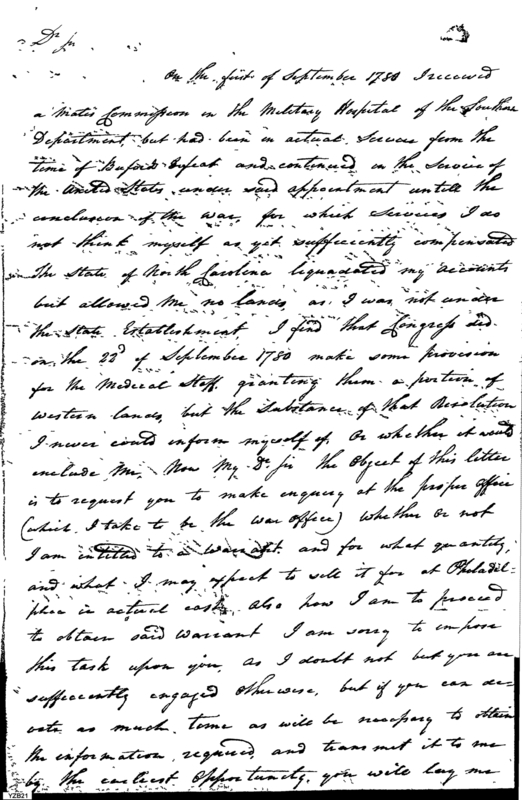 Dr Sir
On the first of September 1780 I received
a Mates Commission in the Military Hospital of the Southern
Department, but had been in actual Service from the
time of Bufords defeat and continued in the Service of
the United States under said appointment untill the
conclusion of the war, for which Services I do
not think myself as yet sufficiently compensated
The State of North Carolina liquadated my accounts
but allowed me no lands, as I was not under
the State Establishment I find that Congress did
on the 22d of September 1780 make some provision
for the Medical Staff granting them a portion of
western lands, but the Substance of that Resolution
I never could inform myself of, Or whether it would
include Me, Now My Dr Sir the Object of this letter
is to request you to make enquiry at the proper office
(which I take to be the war office) whether or not
I am intitled to a warrant and for what quantity,
and what I may expect to sell it for at Philadel
phia in actual cash, also how I am to proceed
to obtain said warrant I am sorry to impose
this task upon you, as I doubt not but you are
sufficiently engaged otherwise, but if you can de-
vote as much time as will be necessary to obtain
the information required and transmit it to me
by the earliest Opportunity, you will lay me
YZB21